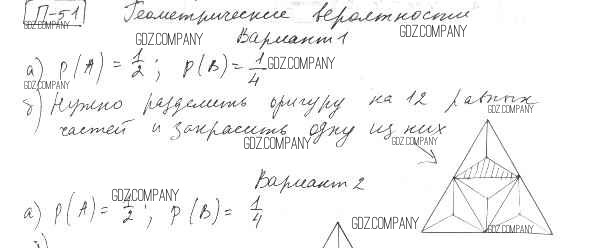 П-51 Геометрические вероятности
GDZ.COMPANY
GDZ.COMPANY Вариант 1 GDZ.COMPANY
а) P(A) = 1/2; P(B) = 1/4 GDZ.COMPANY
GDZ.COMPANY
б) Нужно разделить фигуру на 12 равных
GDZ.COMPANY
частей и закрасить одну из них
GDZ.COMPANY GDZ.COMPANY
Вариант 2
GDZ.COMPANY
а) P(A) = 1/2; P(B) = 1/4
GDZ.COMPANY GDZ.COMPANY